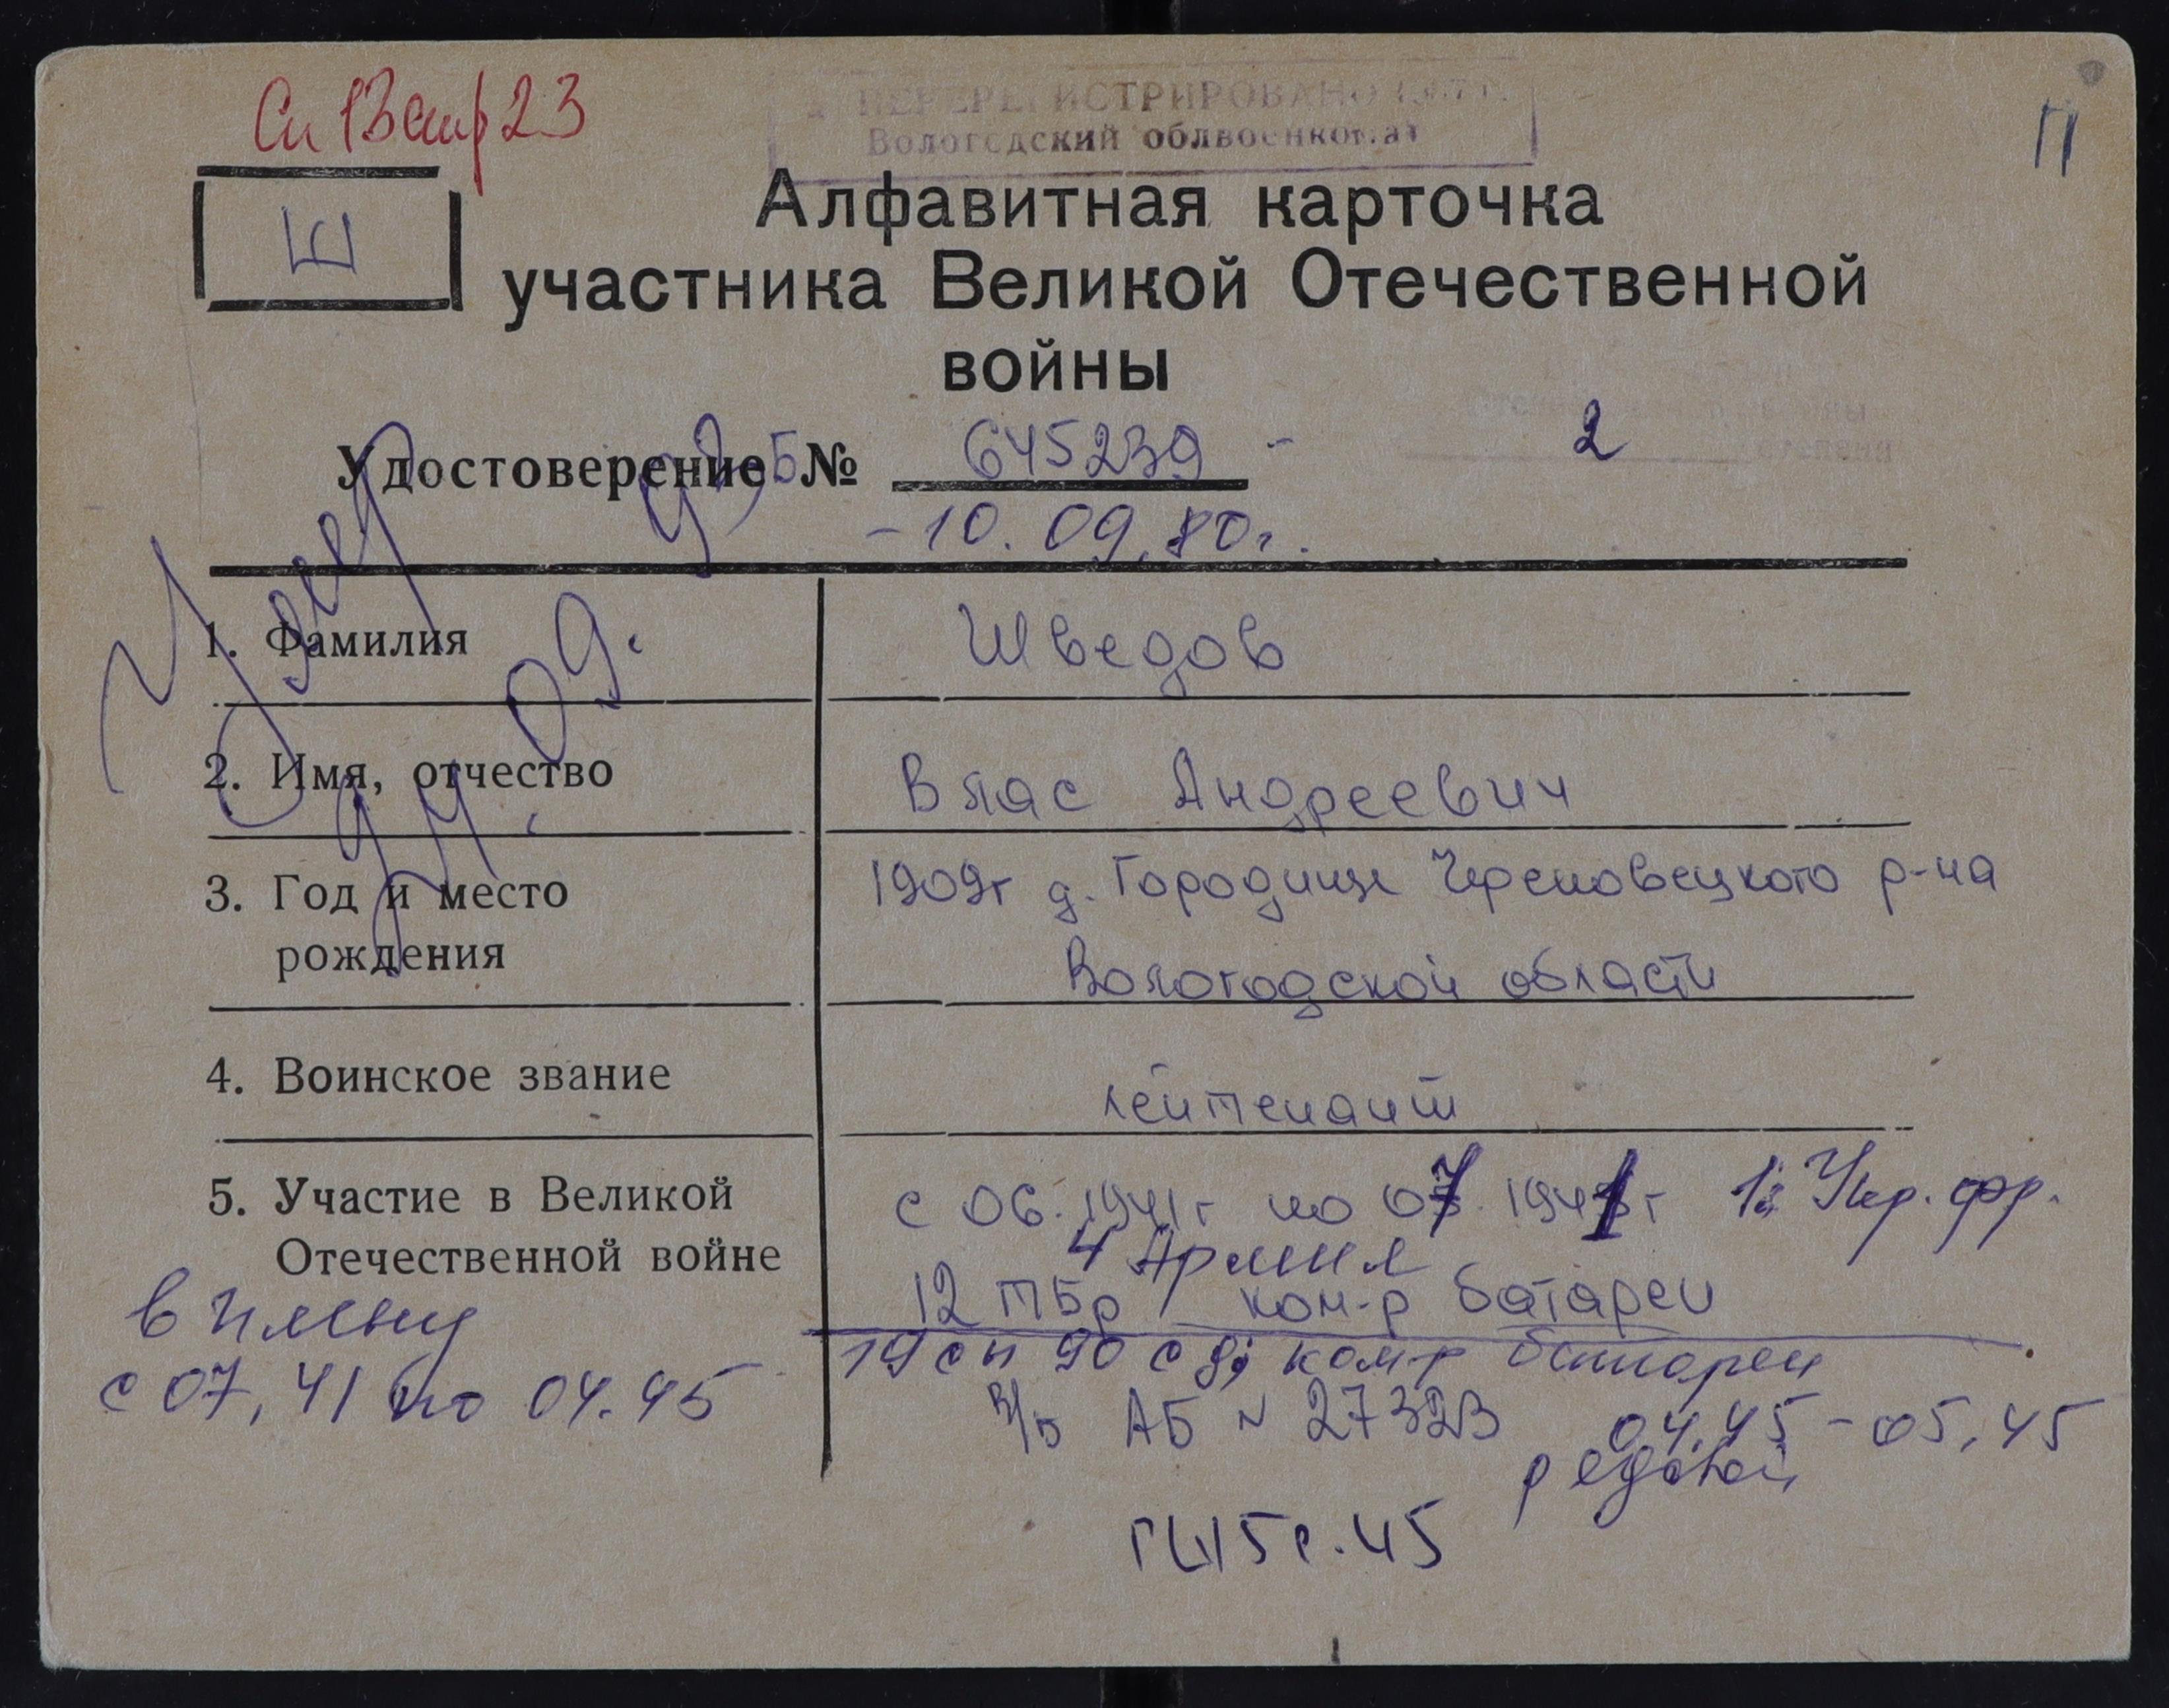 Сп 13 стр 23
ПЕРЕРЕГИСТРИРОВАНО
Вологодский облвоенкомат
П
Е
Алфавитная карточка
участника Великой Отечественной
войны
Удостоверение № 645239 - 2
- 10.09.80г.
Умер
1. Фамилия Шведов
2. Имя, отчество Влас Андреевич
3. Год и место рождения 1909г д. Городище Череповецкого р-на
Вологодской области
4. Воинское звание лейтенант
5. Участие в Великой Отечественной войне с 06.1941г по 07.1941г 1й Укр. фр.
4 Армия
12 ПБр ком-р батареи
19 сп 90 сд; ком-р батареи
в плену
с 07,41 по 04.45
в/б АБ № 27323 04,45 - 05,45
рядовой